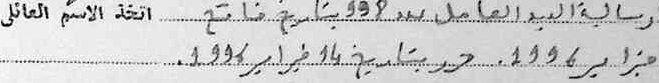 رسالة السيد العامل عدد 998 بتاريخ فاتح اتخذ الاسم العائلي
فبراير 1996. حرر بتاريخ 14 فبراير 1996.